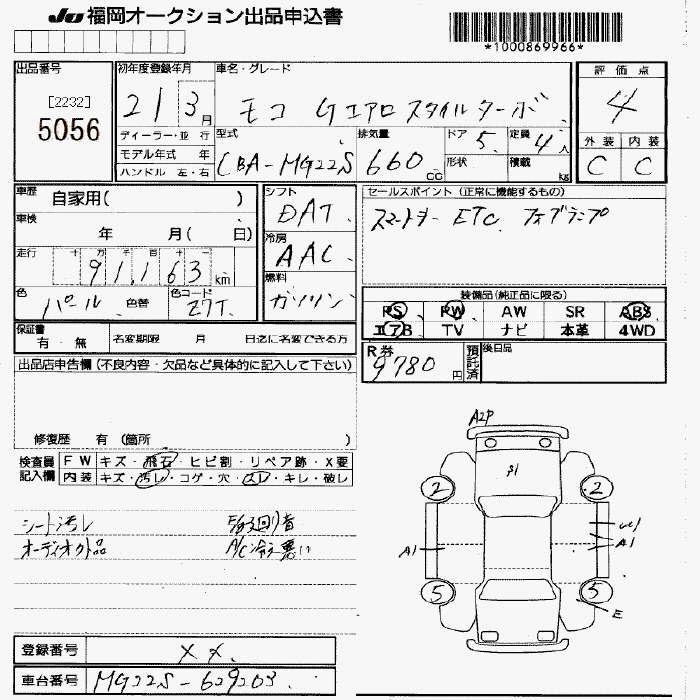 JU 福岡オークション出品申込書
*1000869966*
出品番号
[2232]
5056
初年度登録年月
21 3月
ディーラー・並 行
モデル年式 年
ハンドル 左・右
車名・グレード
モコ Gエアロスタイルターボ
型式
CBA-MG22S
排気量
660 cc
ドア 5
定員 4人
形状
積載 kg
評価点
4
外装 内装
C C
車歴
自家用( )
車検
年 月( 日)
走行 十 万 千 百 十 一
91,163 km
色
パール 色替
色コード
Z7T
シフト
DAT
冷房
AAC
燃料
ガソリン
セールスポイント (正常に機能するもの)
スマートキー ETC フォグランプ
装備品(純正品に限る)
PS PW AW SR ABS
エアB TV ナビ 本革 4WD
保証書
有・無
名変期限 月 日迄に名変できる方
R券
9780 円
預託済
後日品
出品店申告欄 (不良内容・欠品など具体的に記入して下さい)
修復歴 有 (箇所 )
検査員記入欄
FW キズ・飛石・ヒビ割・リペア跡・X要
内装 キズ・汚レ・コゲ・穴・スレ・キレ・破レ
シート汚レ
オーディオ欠品
A/C冷え悪い
A2P
2
2
A1
A1
5
5
E
登録番号
××
車台番号
MG22S-629203